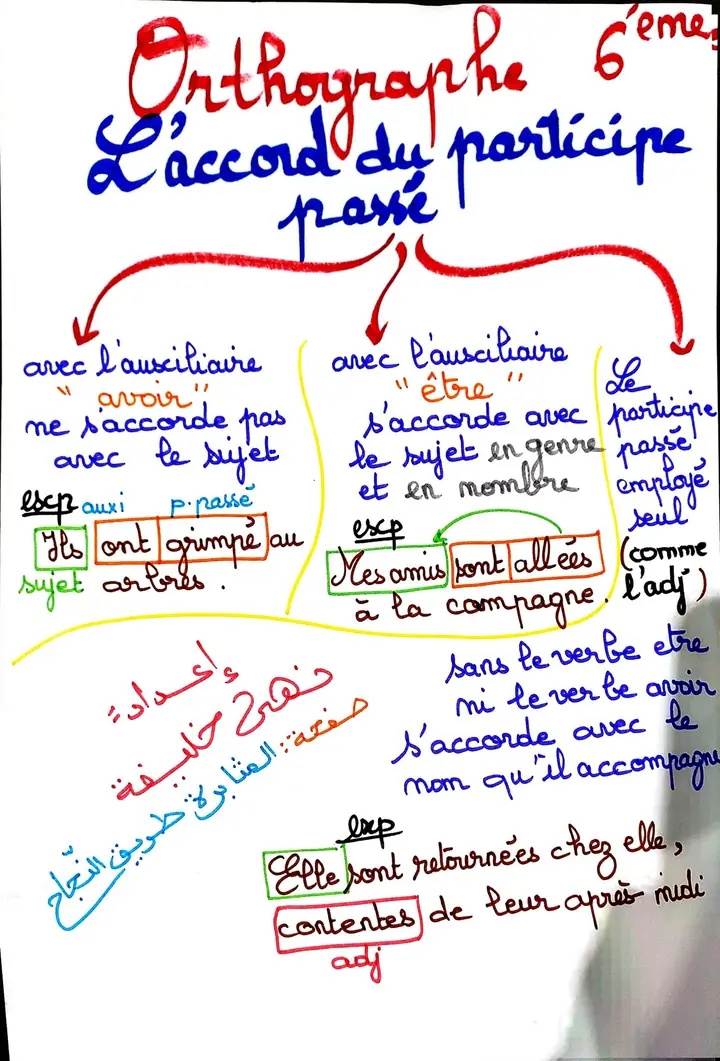 Orthographe 6èmes
L'accord du participe
passé
avec l'auxciliaire
"avoir"
ne s'accorde pas
avec le sujet
escp auxi p.passé
Ils ont grimpé au
sujet arbres.
avec l'auxciliaire
"être"
s'accorde avec
le sujet en genre
et en nombre
escp
Mes amis sont allées
à la campagne.
Le
participe
passé
employé
seul
(comme
l'adj)
sans le verbe etre
ni le verbe avoir
s'accorde avec le
nom qu'il accompagne
إعداد:
نهى خليفة
صفحة: المثابرة طريق النجاح
exp
Elle sont retournées chez elle,
contentes de leur après-midi
adj